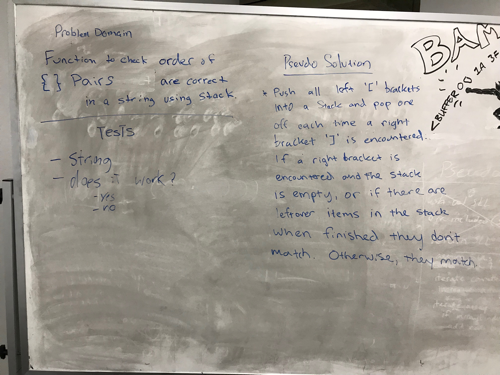 Problem Domain
Function to check order of
{ } Pairs are correct
in a string using Stack.
Tests
- String
- does it work?
- yes
- no
Pseudo Solution
* Push all left '[' brackets
into a Stack and pop one
off each time a right
bracket ']' is encountered.
If a right bracket is
encountered and the stack
is empty, or if there are
leftover items in the stack
when finished they don't
match. Otherwise, they match.
BAM
<BUFFER OD 1A 3F